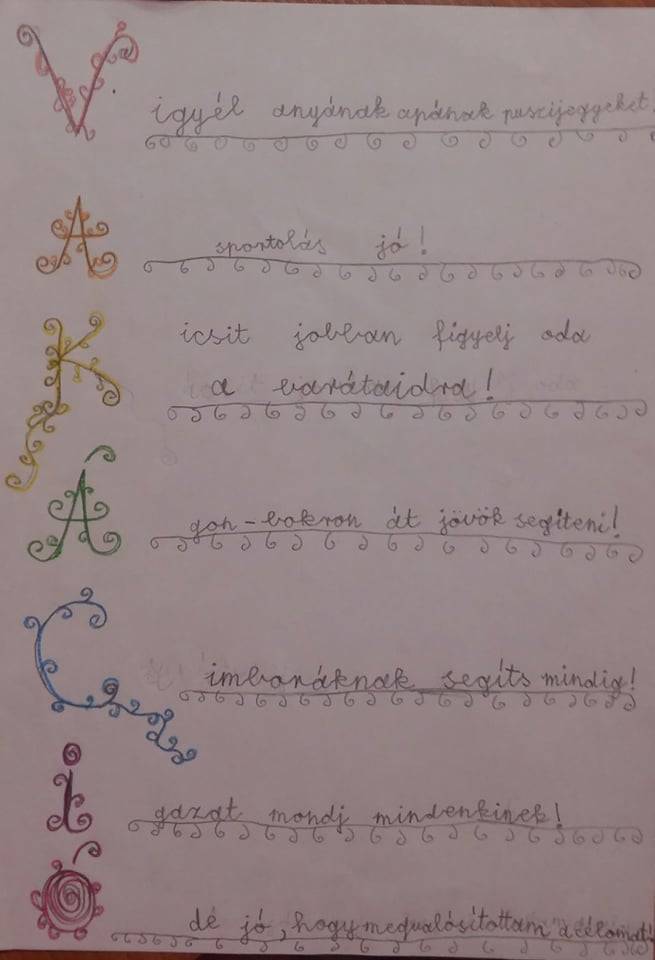 Vigyél anyának apának puszijegyeket.
A sportolás jó!
Kicsit jobban figyelj oda
a barátaidra!
Ágon-bokron át jövök segíteni!
Cimboráknak segíts mindig!
igazat mondj mindenkinek!
Ódé jó, hogy megvalósítottam a célomat!